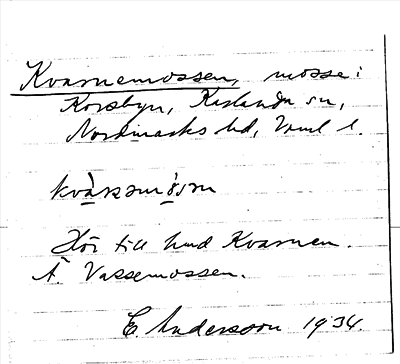 Kvarnemossen, mosse i
Korsbyn, Karlanda sn,
Nordmarks hd, Vrml l.
Hör till hmd Kvarnen.
Ä. Vassemossen.
E. Andersson 1934.